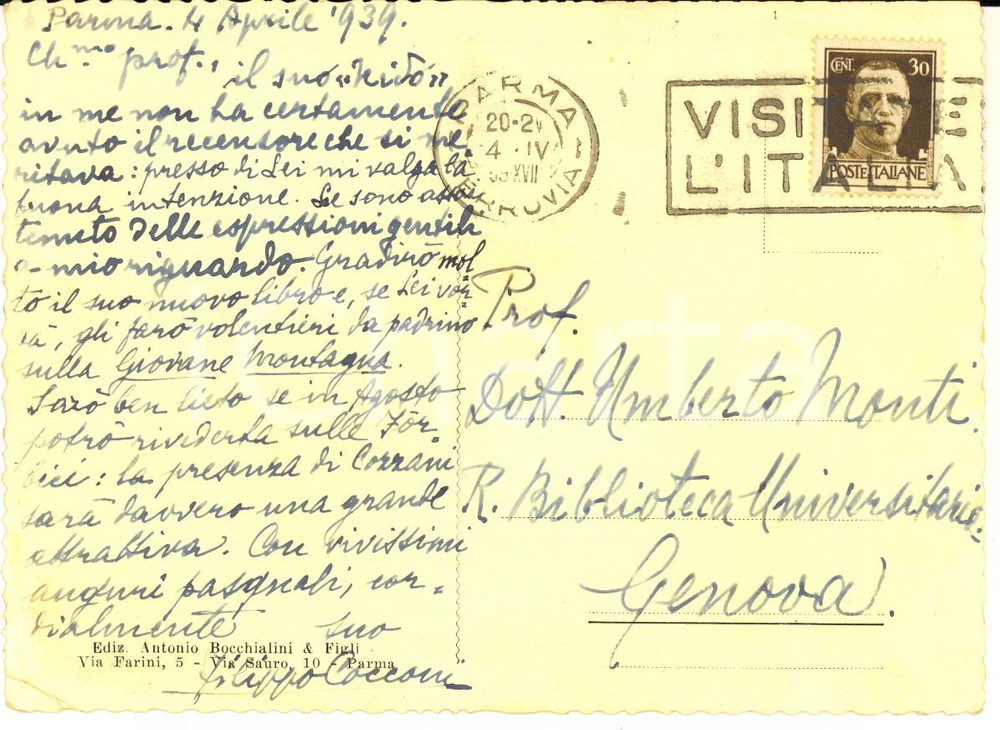 Parma. 4 Aprile '939.
Ch.mo prof.,
il suo «Nido»
in me non ha certamente
avuto il recensore che si me-
ritava: presso di Lei mi valga la
buona intenzione. Le sono
tenuto delle espressioni gentili
a mio riguardo. Gradirò mol-
to il suo nuovo libro e, se Lei vor-
rà, gli farò volentieri da padrino
sulla Giovane Montagna.
Sarò ben lieto se in Agosto
potrò rivederla sulle Fór-
bici: la presenza di Cozzani
sarà davvero una grande
attrattiva. Con vivissimi
auguri pasquali, cor-
dialmente suo
Filippo Cocconi
Ediz. Antonio Bocchialini & Figli
Via Farini, 5 - Via Sauro, 10 - Parma
PARMA
20-21
4 IV
39 XVII
FERROVIA
VISITATE
L'ITALIA
CENT. 30
POSTE ITALIANE
Prof.
Dott. Umberto Monti.
R. Biblioteca Universitaria.
Genova.